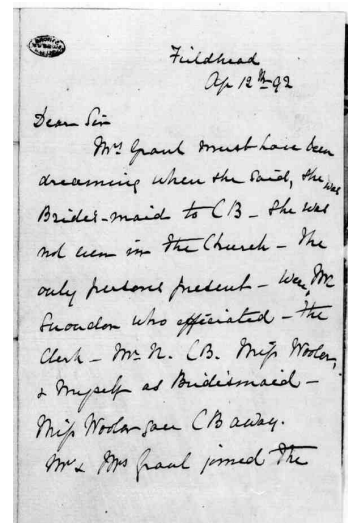 Fieldhead
Ap 12th 92
Dear Sir
Mrs Grant must have been
dreaming when she said, she was
Brides-maid to CB - She was
not even in the Church - The
only persons present - were Mr
Snowdon who officiated - the
Clerk - Mr N. CB. Miss Wooler,
& Myself as Bridesmaid -
Miss Wooler gave CB away.
Mr & Mrs Grant joined the